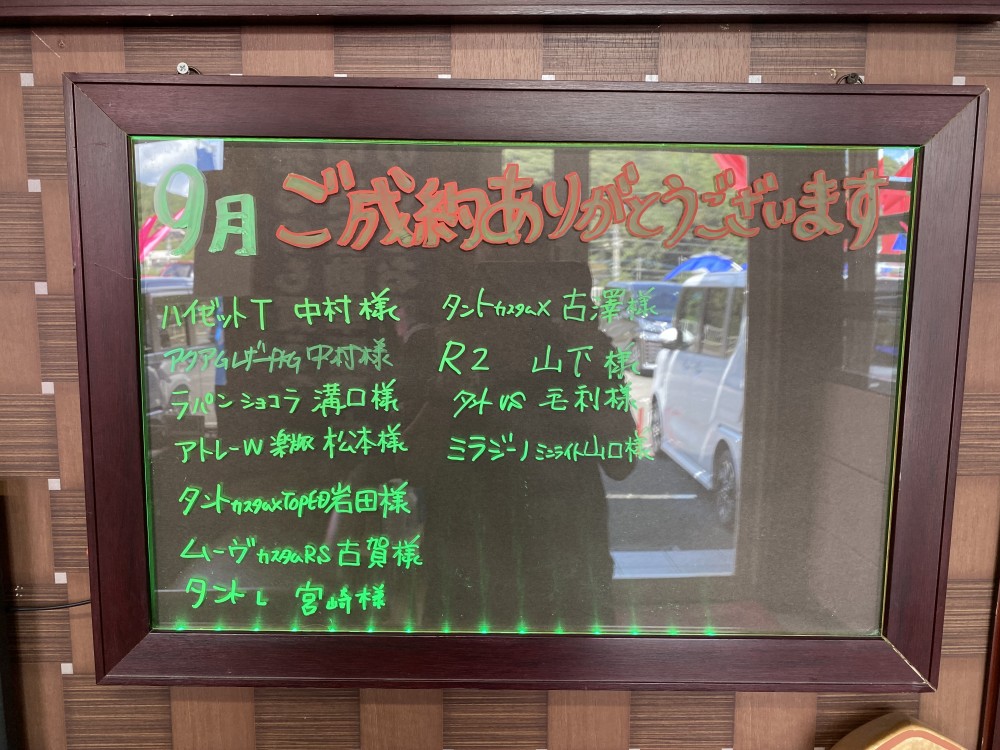 9月 ご成約ありがとうございます
ハイゼットT 中村様
アクアG 中村様
ラパン ショコラ 溝口様
アトレーW 松本様
タントカスタムX TopED 岩田様
ムーヴカスタムRS 古賀様
タントL 宮崎様
タントカスタムX 古澤様
R2 山下様
タントVS 毛利様
ミラジーノ ミニライト 山口様